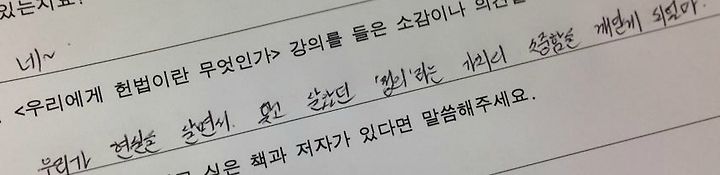 있는지요?
네~
<우리에게 헌법이란 무엇인가> 강의를 들은 소감이나 의견을
우리가 현실을 살면서 잊고 살았던 '정의'라는 가치의 소중함을 깨닫게 되었다.
싶은 책과 저자가 있다면 말씀해주세요.